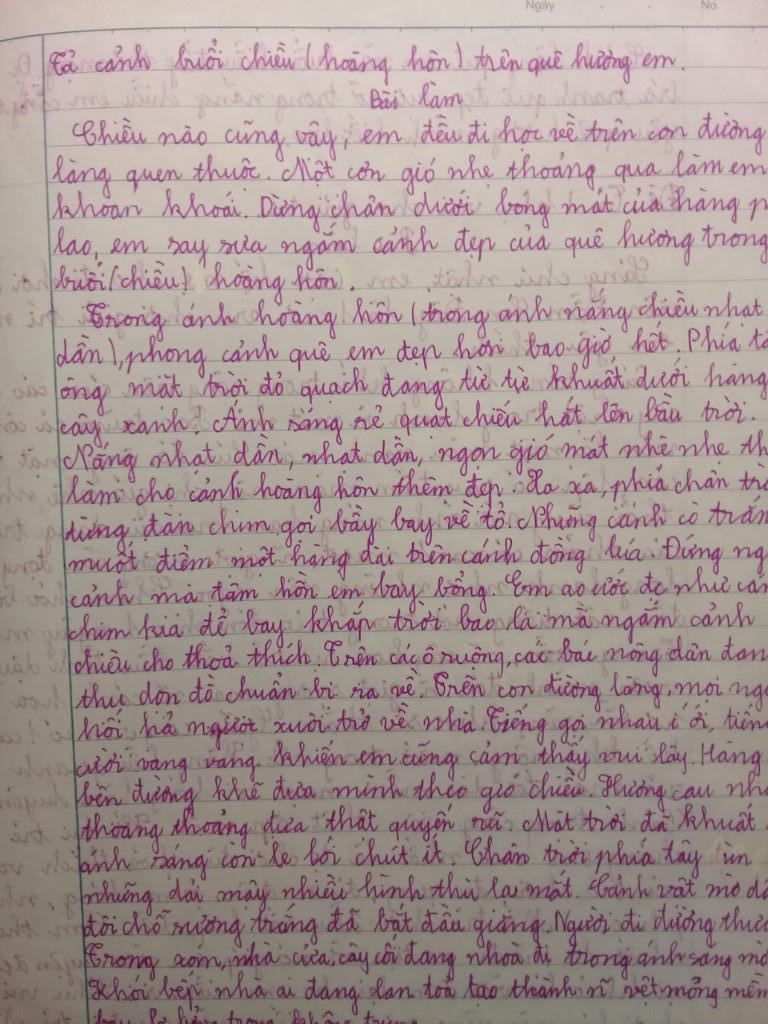 Ngày No.
Tả cảnh buổi chiều (hoàng hôn) trên quê hương em.
Bài làm
Chiều nào cũng vậy, em đều đi học về trên con đường
làng quen thuộc. Một cơn gió nhẹ thoảng qua làm em
khoan khoái. Dừng chân dưới bóng mát của hàng p
lao, em say sưa ngắm cảnh đẹp của quê hương trong
buổi (chiều) hoàng hôn.
Trong ánh hoàng hôn (trong ánh nắng chiều nhạt
dần), phong cảnh quê em đẹp hơn bao giờ hết. Phía tâ
ông mặt trời đỏ quạch đang từ từ khuất dưới hàng
cây xanh. Ánh sáng rẻ quạt chiếu hắt lên bầu trời.
Nắng nhạt dần, nhạt dần, ngọn gió mát nhè nhẹ th
làm cho cảnh hoàng hôn thêm đẹp. Xa xa, phía chân trờ
từng đàn chim gọi bầy bay về tổ. Những cánh cò trắn
muốt điểm một hàng dài trên cánh đồng lúa. Đứng ng
cảnh mà tâm hồn em bay bổng. Em ao ước đc như cán
chim kia để bay khắp trời bao la mà ngắm cảnh
chiều cho thoả thích. Trên các ô ruộng, các bác nông dân đan
thu dọn đồ chuẩn bị ra về. Trên con đường làng, mọi ngư
hối hả ngược xuôi trở về nhà. Tiếng gọi nhau í ới, tiến
cười vang vang khiến em cũng cảm thấy vui lây. Hàng
bên đường khẽ đưa mình theo gió chiều. Hương cau nh
thoang thoảng đưa thật quyến rũ. Mặt trời đã khuất
ánh sáng còn le lói chút ít. Chân trời phía tây ùn
những dải mây nhiều hình thù lạ mắt. Cảnh vật mờ dầ
đôi chỗ sương trắng đã bắt đầu giăng. Người đi đường thưa
Trong xóm, nhà cửa, cây cối đang nhoà đi trong ánh sáng mờ
Khói bếp nhà ai đang lan toả tạo thành n~ vệt mỏng mềm